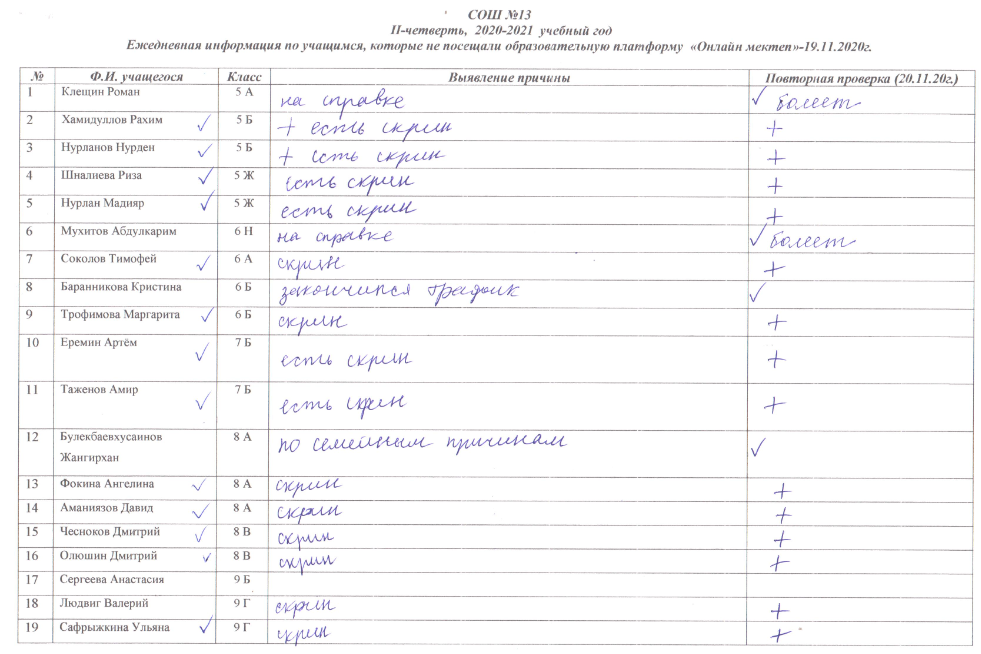 СОШ №13
II-четверть, 2020-2021 учебный год
Ежедневная информация по учащимся, которые не посещали образовательную платформу «Онлайн мектеп»-19.11.2020г.
№ Ф.И. учащегося Класс Выявление причины Повторная проверка (20.11.20г.)
1 Клещин Роман 5 А на справке ✓ болеет
2 Хамидуллов Рахим ✓ 5 Б + есть скрин +
3 Нурланов Нурден ✓ 5 Б + есть скрин +
4 Шналиева Риза ✓ 5 Ж есть скрин +
5 Нурлан Мадияр ✓ 5 Ж есть скрин +
6 Мухитов Абдулкарим 6 Н на справке ✓ болеет
7 Соколов Тимофей ✓ 6 А скрин +
8 Баранникова Кристина 6 Б закончился трафик ✓
9 Трофимова Маргарита ✓ 6 Б скрин +
10 Еремин Артём ✓ 7 Б есть скрин +
11 Таженов Амир ✓ 7 Б есть скрин +
12 Булекбаевхусаинов 8 А по семейным причинам ✓
Жангирхан
13 Фокина Ангелина ✓ 8 А скрин +
14 Аманиязов Давид ✓ 8 А скрин +
15 Чесноков Дмитрий ✓ 8 В скрин +
16 Олюшин Дмитрий ✓ 8 В скрин +
17 Сергеева Анастасия 9 Б
18 Людвиг Валерий 9 Г скрин +
19 Сафрыжкина Ульяна ✓ 9 Г скрин +